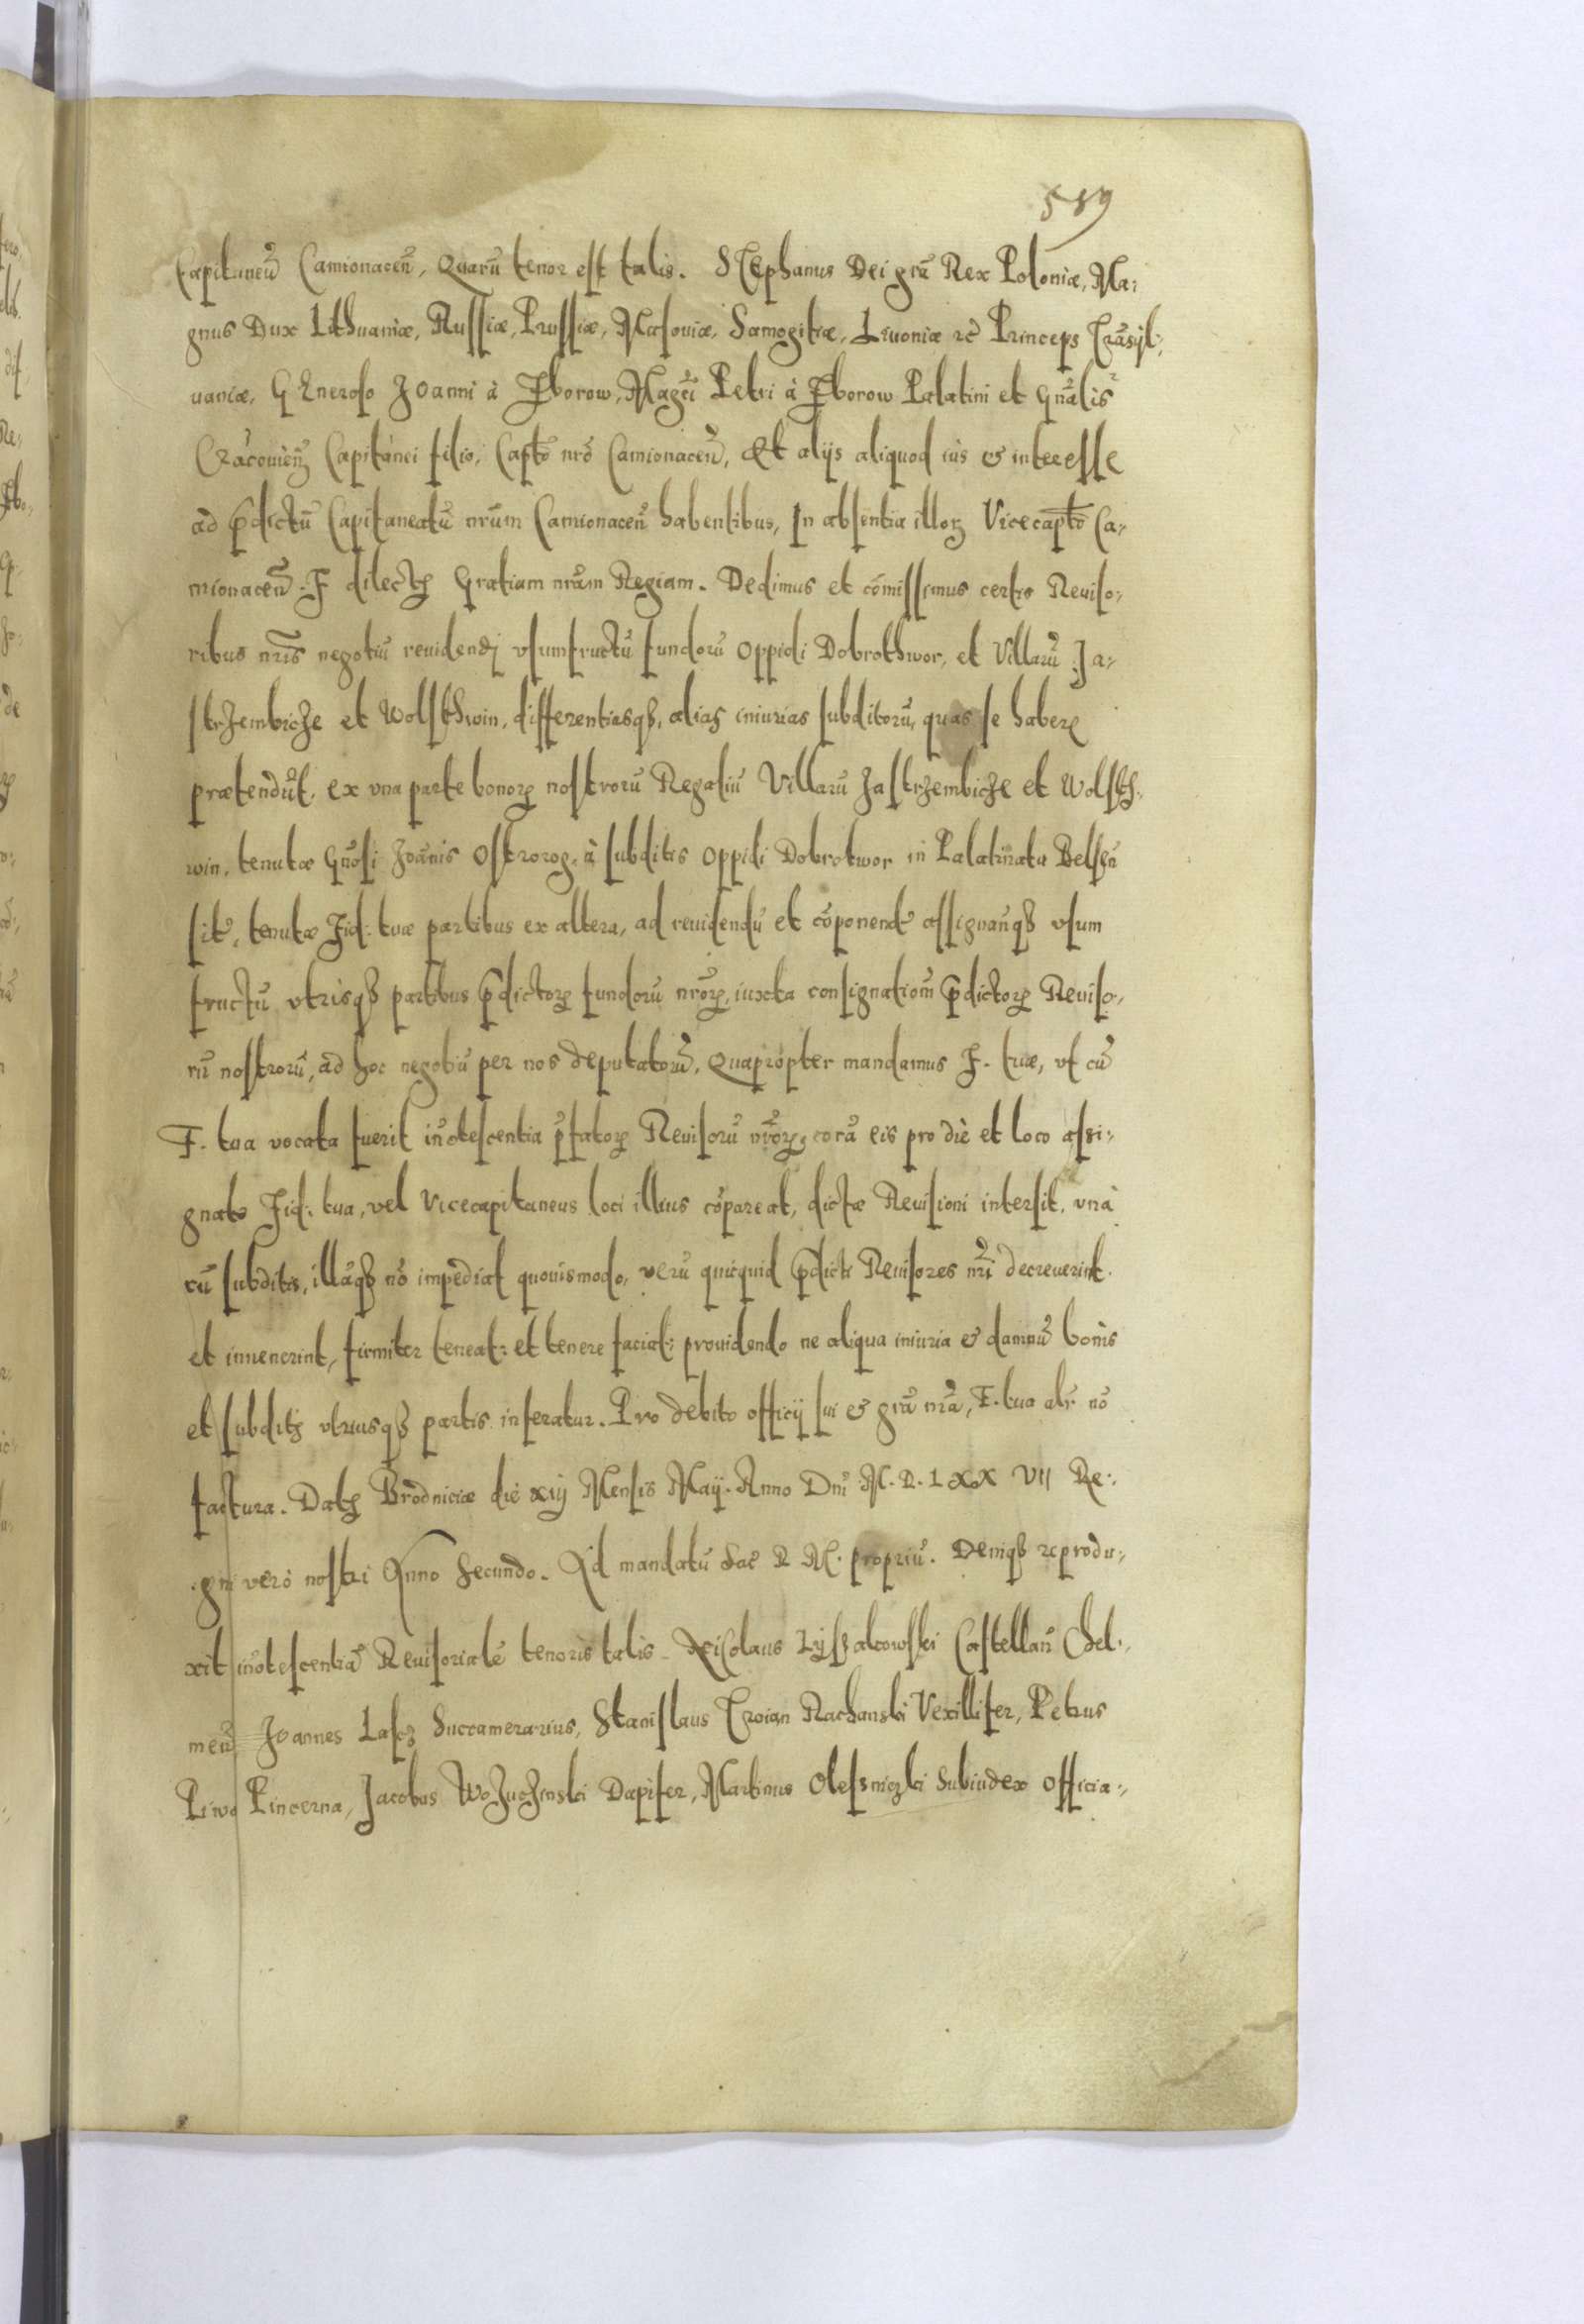 519
Capitaneũ Camionaceñ, Quarũ tenor est talis. Stephanus Dei grã Rex Poloniæ, Ma:
gnus Dux Lithuaniæ, Russiæ, Prussiæ, Masoviæ, Samogitiæ, Livoniæ &c Princeps Trãsyl:
uaniæ, Generoso Joanni à Zborow, Magci Petri à Zborow Palatini et Gnãlis
Cracovieñ Capitanei filio, Capto nrõ Camionaceñ, Et alijs aliquod iùs & interesse
ad p̃dictũ Capitaneatũ nrũm Camionaceñ habentibus, In absentia illorꝝ Vicecapto Ca:
mionaceñ. F dilectis Gratiam nrãm Regiam. Dedimus et cõmissimus certis Reviso:
ribus nrĩs negotiũ reuidendi vsumfructũ fundorũ Oppidi Dobrothwor, et Villarũ Ja:
strzembicze et Wolsthwin, differentiasqꝫ, alias iniurias subditorũ, quas se habere
prætendũt, ex vna parte bonorꝝ nostrorũ Regaliũ Villarũ Jastrzembicze et Wolsth:
win, tenutæ Gnõsi Joãnis Ostrorog, à subditis Oppidi Dobrotwor in Palatinatu Belseñ
sitõ, tenutæ Fid: tuæ partibus ex altera, ad reuidendũ et cõponendũ assignanqꝫ vsum
fructũ vtrisqꝫ partibus p̃dictorꝝ fundorũ nrõrꝝ, iuxta consignationẽ p̃dictorꝝ Reuiso:
rũ nostrorũ, ad hoc negotiũ per nos deputatorũ. Quapropter mandamus F. tuæ, vt cũ
F. tua vocata fuerit iñotescentia p̃fatorꝝ Reuisorũ nrõrꝝ, corã eis pro diè et loco assi:
gnato Fid: tua, vel Vicecapitaneus loci illius cõpareat, dictæ Reuisioni intersit, vnà
cũ subditis, illãqꝫ nõ impediat quouismodo, verũ quicquid p̃dicti Reuisores nrĩ decreuerint
et inuenerint, firmiter teneat: et tenere faciat: prouidendo ne aliqua iniuria & damnũ bonis
et subditis vtriusqꝫ partis inferatur. Pro debito officij sui & grã nrã, F. tua alr̃ nõ
factura. Datꝫ Brodniciæ die xiij Mensis Maij. Anno Dnĩ M. D. LXX VII Re:
gni verò nostri Anno Secundo. Ad mandatũ Sac R M. propriũ. Deniqꝫ reprodu:
xit iñotescentiã Reuisorialẽ tenoris talis. Nicolaus Lyssakowski Castellañ Chel:
meñ Joannes Lascz Succamerarius, Stanislaus Troian Rachanski Vexillifer, Petrus
Piwo Pincerna, Jacobus Wozuczinski Dapifer, Martinus Olessniczki Subiudex Officia: